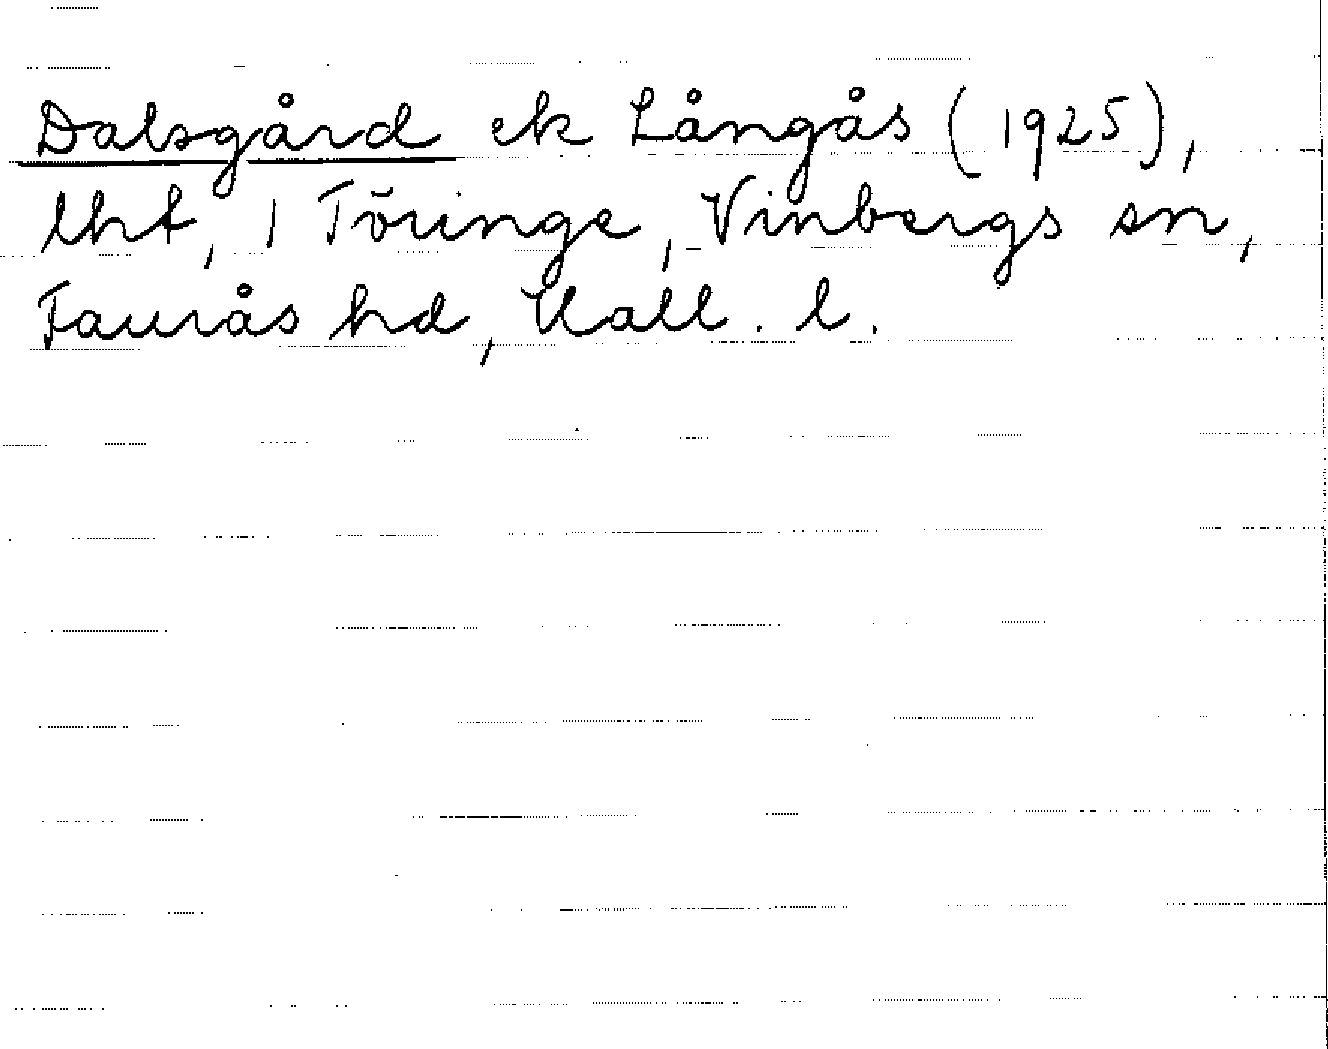 Dalsgård ek Långås (1925),
lht, 1 Töringe, Vinbergs sn,
Faurås hd, Hall. l.